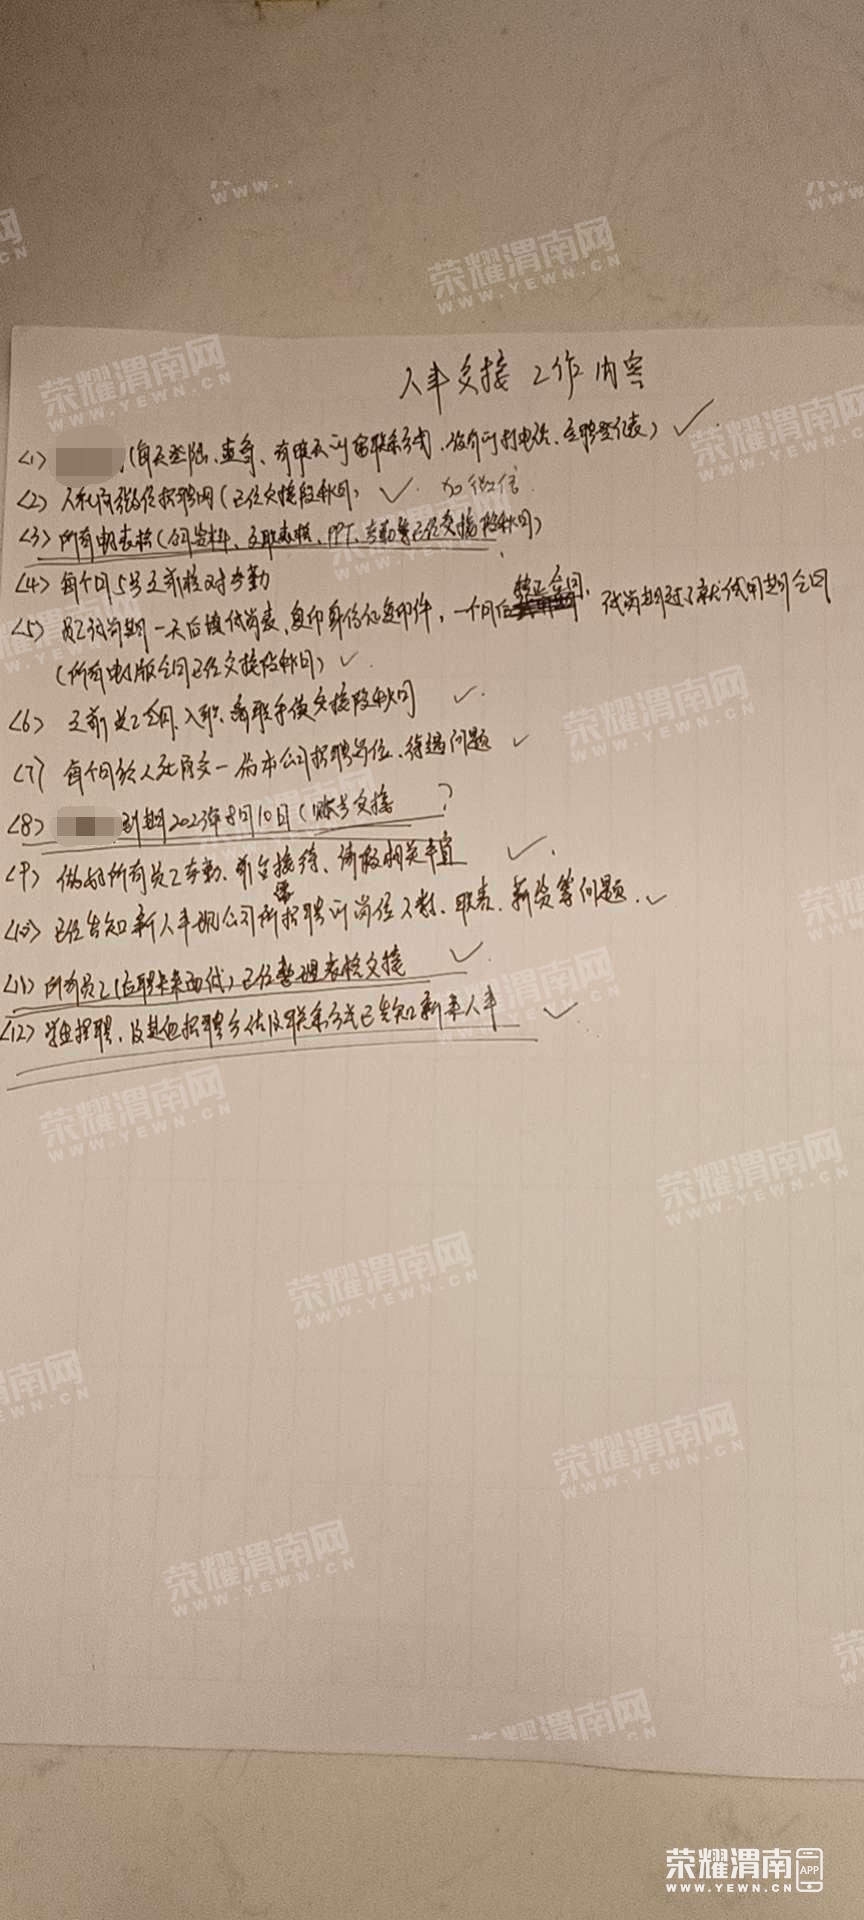 人事交接工作内容
<1> (每天登陆、查看、有联系的留联系方式、没有的打电话、应聘登记表) ✓
<2> 人社局微信招聘网(已经交接段秋月) ✓ 加微信
<3> 所有电子表格(公司资料、入职表格、PPT、考勤等已经交接段秋月)
<4> 每个月5号之前核对考勤
<5> 员工试岗期一天后填试岗表,复印身份证复印件,一个月后转正合同,试岗期过了就试用期合同
(所有电子版合同已经交接段秋月) ✓
<6> 之前员工合同、入职、离职手续交接段秋月 ✓
<7> 每个月给人社局交一份本公司招聘岗位、待遇问题 ✓
<8> 到期2023年8月10日(账号交接 ?
<9> 做好所有员工考勤、前台接待、请假相关事宜 ✓
<10> 已经告知新人事现公司所要招聘的岗位人数、职责、薪资等问题. ✓
<11> 所有员工(应聘未来面试)已经整理表格交接 ✓
<12> 招聘,及其他招聘平台及联系方式已告知新来人事 ✓
荣耀渭南网
WWW.YEWN.CN
APP